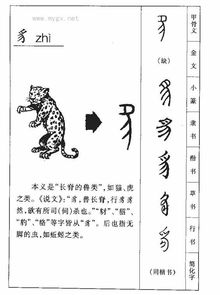 www.mygx.net
豸 zhì
本义是“长脊的兽类”，如猫、虎
之类。《说文》：“豸，兽长脊，行豸豸
然，欲有所司(伺)杀也。”“豺”、“貂”、
“豹”、“貉”等字皆从“豸”。后也指无
脚的虫，如蚯蚓之类。
(缺)
(同楷书)
甲骨文
金文
小篆
隶书
楷书
草书
行书
简化字